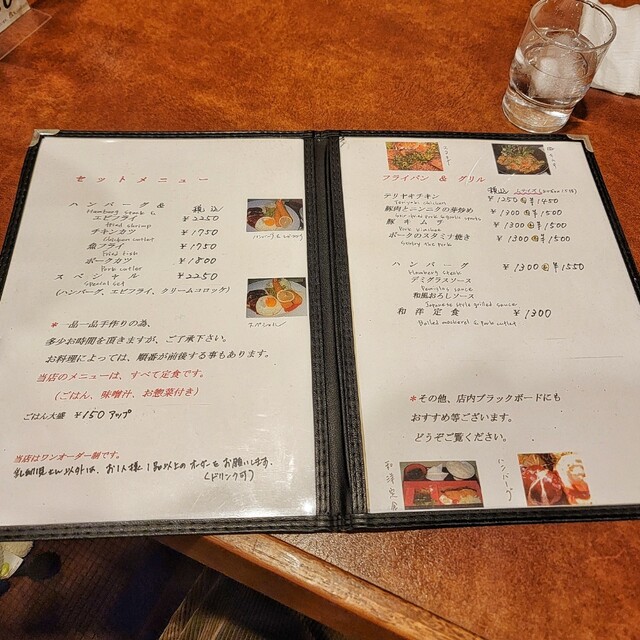 セットメニュー
ハンバーグ & 税込
Hamburg steak &
エビフライ ¥2250
fried shrimp
チキンカツ ¥1750
Chicken cutlet
魚フライ ¥1750
Fried fish
ポークカツ ¥1800
Pork cutlet
スペシャル ¥2250
Special set
(ハンバーグ、エビフライ、クリームコロッケ)
*一品一品手作りの為、
多少お時間を頂きますが、ご了承下さい。
お料理によっては、順番が前後する事もあります。
当店のメニューは、すべて定食です。
(ごはん、味噌汁、お惣菜付き)
ごはん大盛 ¥150アップ
当店はワンオーダー制です。
乳幼児さん以外は、お1人様1品以上のオーダーをお願いします。
(ドリンク可)
フライパン & グリル
税込
テリヤキチキン ¥1250 ¥1450
Teriyaki chicken
豚肉とニンニクの芽炒め ¥1300 ¥1500
豚キムチ ¥1300 ¥1500
Pork kimchee
ポークのスタミナ焼き ¥1300 ¥1500
ハンバーグ ¥1300 ¥1550
Hamburg steak
デミグラスソース
和風おろしソース
Japanese style grilled sauce
和洋定食 ¥1300
Boiled mackerel & pork cutlet
*その他、店内ブラックボードにも
おすすめ等ございます。
どうぞご覧ください。
和洋定食
ハンバーグ